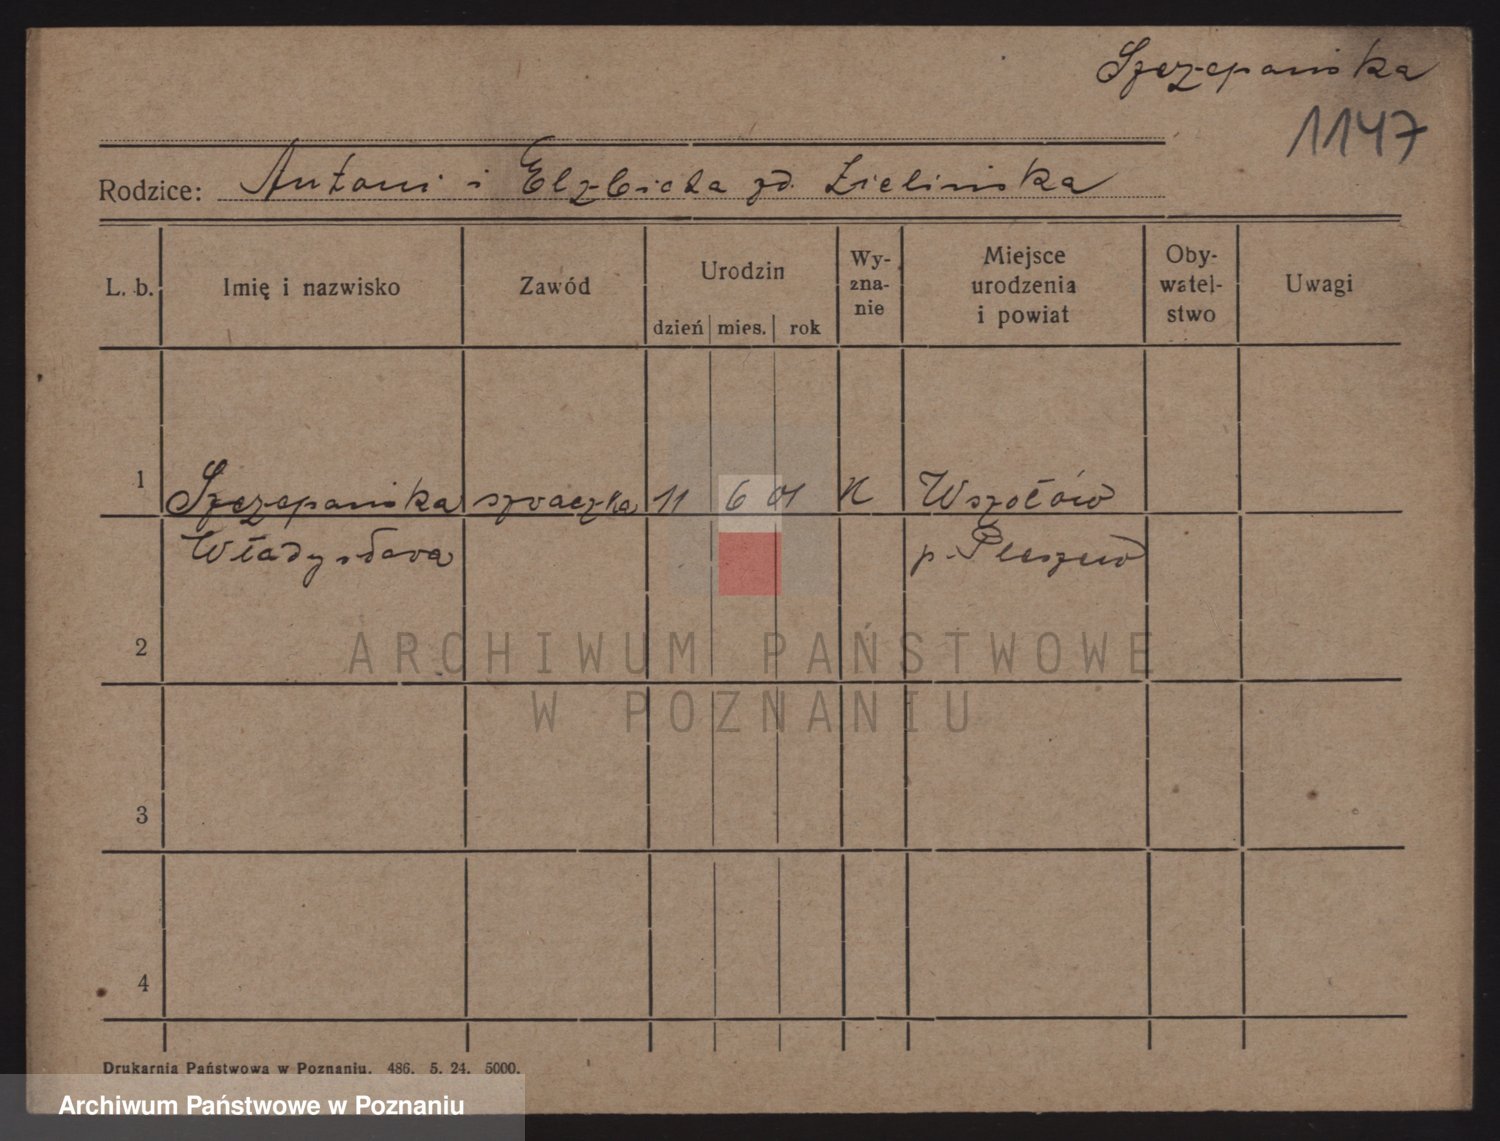 Szczepańska
1147
Rodzice: Antoni i Elżbieta zd. Zielińska
L. b. Imię i nazwisko Zawód Urodzin dzień mies. rok Wy-zna-nie Miejsce urodzenia i powiat Oby-watel-stwo Uwagi
1 Szczepańska szwaczka 11 6 01 K Wszołów
Władysława p. Pleszew
2
ARCHIWUM PAŃSTWOWE
W POZNANIU
3
4
Drukarnia Państwowa w Poznaniu. 486. 5. 24. 5000.
Archiwum Państwowe w Poznaniu